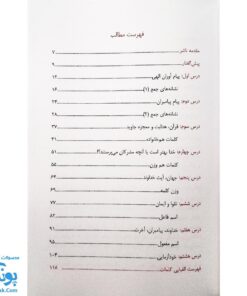 فهرست مطالب
مقدمه ناشر ۷
پیش‌گفتار ۹
درس اول: پیام آوران الهی ۱۲
نشانه‌های جمع (۱) ۱۶
درس دوم: پیام پیامبران ۲۴
نشانه‌های جمع (۲) ۲۸
درس سوم: قرآن، هدایت و معجزه جاوید ۳۷
کلمات هم‌خانواده ۴۱
درس چهارم: خدا بهتر است یا آنچه مشرکان می‌پرستند؟! ۵۱
کلمات هم وزن ۵۵
درس پنجم: جهان، آیت خداوند ۶۵
وزن کلمه ۶۹
درس ششم: تقوا و ایمان ۷۷
اسم فاعل ۸۱
درس هفتم: خداوند، پیامبران، آخرت ۹۱
اسم مفعول ۹۵
درس هشتم: خودآزمایی ۱۰۴
فهرست الفبایی کلمات ۱۱۵
محصولات